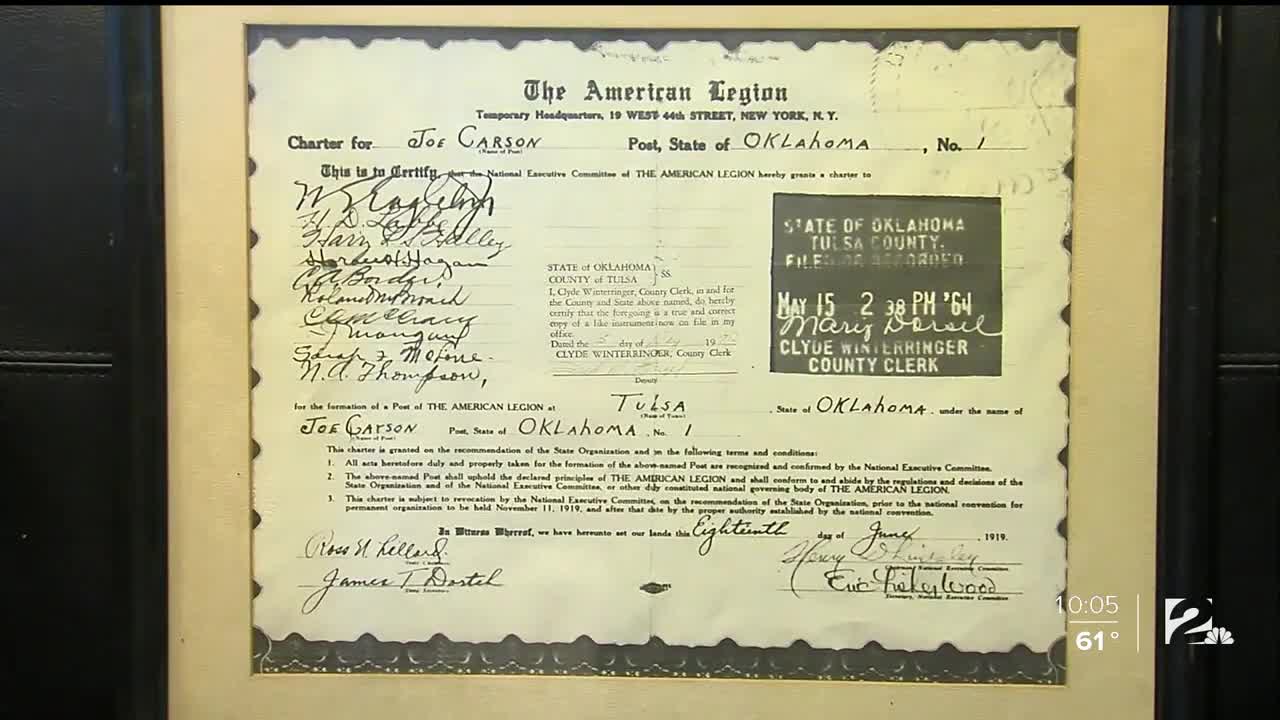 The American Legion
Temporary Headquarters, 19 WEST 44th STREET, NEW YORK, N. Y.
Charter for JOE CARSON Post, State of OKLAHOMA, No. 1
(Name of Post)
This is to Certify, that the National Executive Committee of THE AMERICAN LEGION hereby grants a charter to
Harry L. S. Halley
Herbert Hagan
N. A. Thompson,
STATE of OKLAHOMA } SS.
COUNTY of TULSA
I, Clyde Winterringer, County Clerk, in and for
the County and State above named, do hereby
certify that the foregoing is a true and correct
copy of a like instrument now on file in my
office.
Dated the day of 19
CLYDE WINTERRINGER, County Clerk
Deputy
STATE OF OKLAHOMA
TULSA COUNTY.
FILED OR RECORDED
MAY 15 2 38 PM '64
CLYDE WINTERRINGER
COUNTY CLERK
for the formation of a Post of THE AMERICAN LEGION at TULSA, State of OKLAHOMA, under the name of
(Name of Town)
JOE CARSON Post, State of OKLAHOMA, No. 1
(Name of Post)
This charter is granted on the recommendation of the State Organization and on the following terms and conditions:
1. All acts heretofore duly and properly taken for the formation of the above-named Post are recognized and confirmed by the National Executive Committee.
2. The above-named Post shall uphold the declared principles of THE AMERICAN LEGION and shall conform to and abide by the regulations and decisions of the
State Organization and of the National Executive Committee, or other duly constituted national governing body of THE AMERICAN LEGION.
3. This charter is subject to revocation by the National Executive Committee, on the recommendation of the State Organization, prior to the national convention for
permanent organization to be held November 11, 1919, and after that date by the proper authority established by the national convention.
In Witness Whereof, we have hereunto set our hands this Eighteenth day of June, 1919.
Chairman National Executive Committee.
James T Dortch
Secretary, National Executive Committee
10:05
61°
2